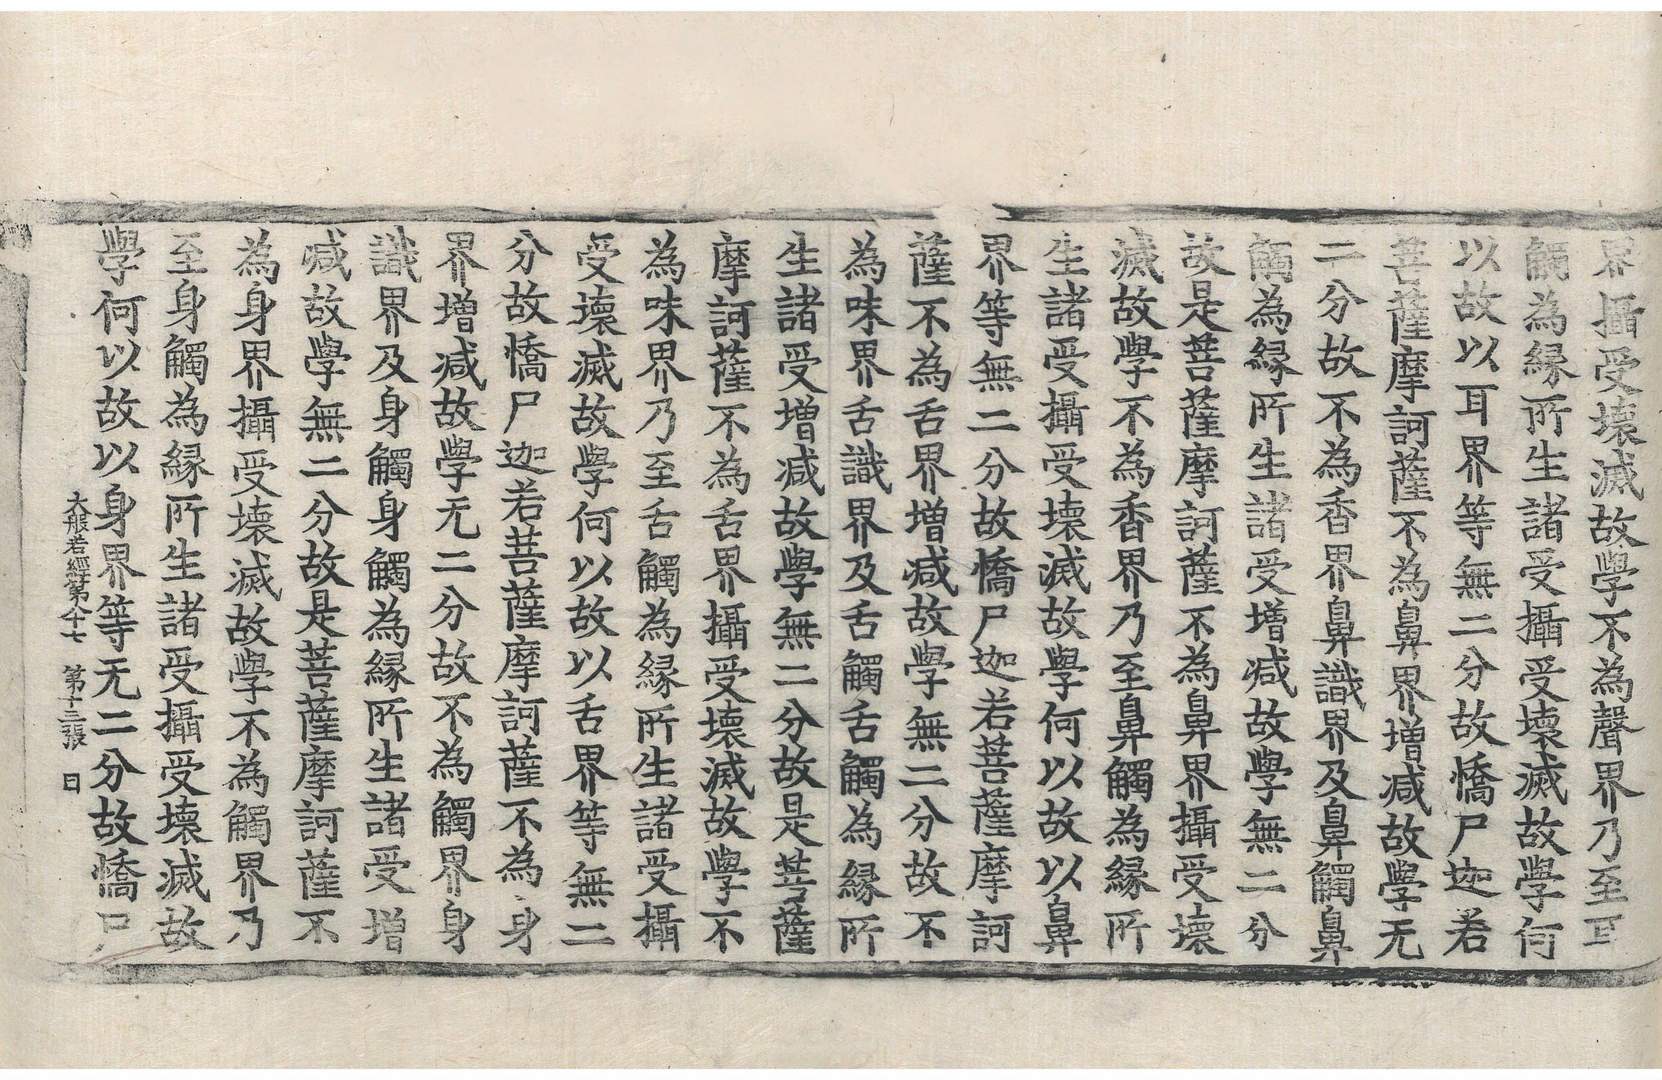 界攝受壞滅故學不為聲界乃至耳
觸為縁所生諸受攝受壞滅故學何
以故以耳界等無二分故憍尸迦若
菩薩摩訶薩不為鼻界增減故學无
二分故不為香界鼻識界及鼻觸鼻
觸為縁所生諸受增減故學無二分
故是菩薩摩訶薩不為鼻界攝受壞
滅故學不為香界乃至鼻觸為縁所
生諸受攝受壞滅故學何以故以鼻
界等無二分故憍尸迦若菩薩摩訶
薩不為舌界增減故學無二分故不
為味界舌識界及舌觸舌觸為縁所
生諸受增減故學無二分故是菩薩
摩訶薩不為舌界攝受壞滅故學不
為味界乃至舌觸為縁所生諸受攝
受壞滅故學何以故以舌界等無二
分故憍尸迦若菩薩摩訶薩不為身
界增減故學无二分故不為觸界身
識界及身觸身觸為縁所生諸受增
減故學無二分故是菩薩摩訶薩不
為身界攝受壞滅故學不為觸界乃
至身觸為縁所生諸受攝受壞滅故
學何以故以身界等无二分故憍尸
大般若經第八十七　第十三張　日